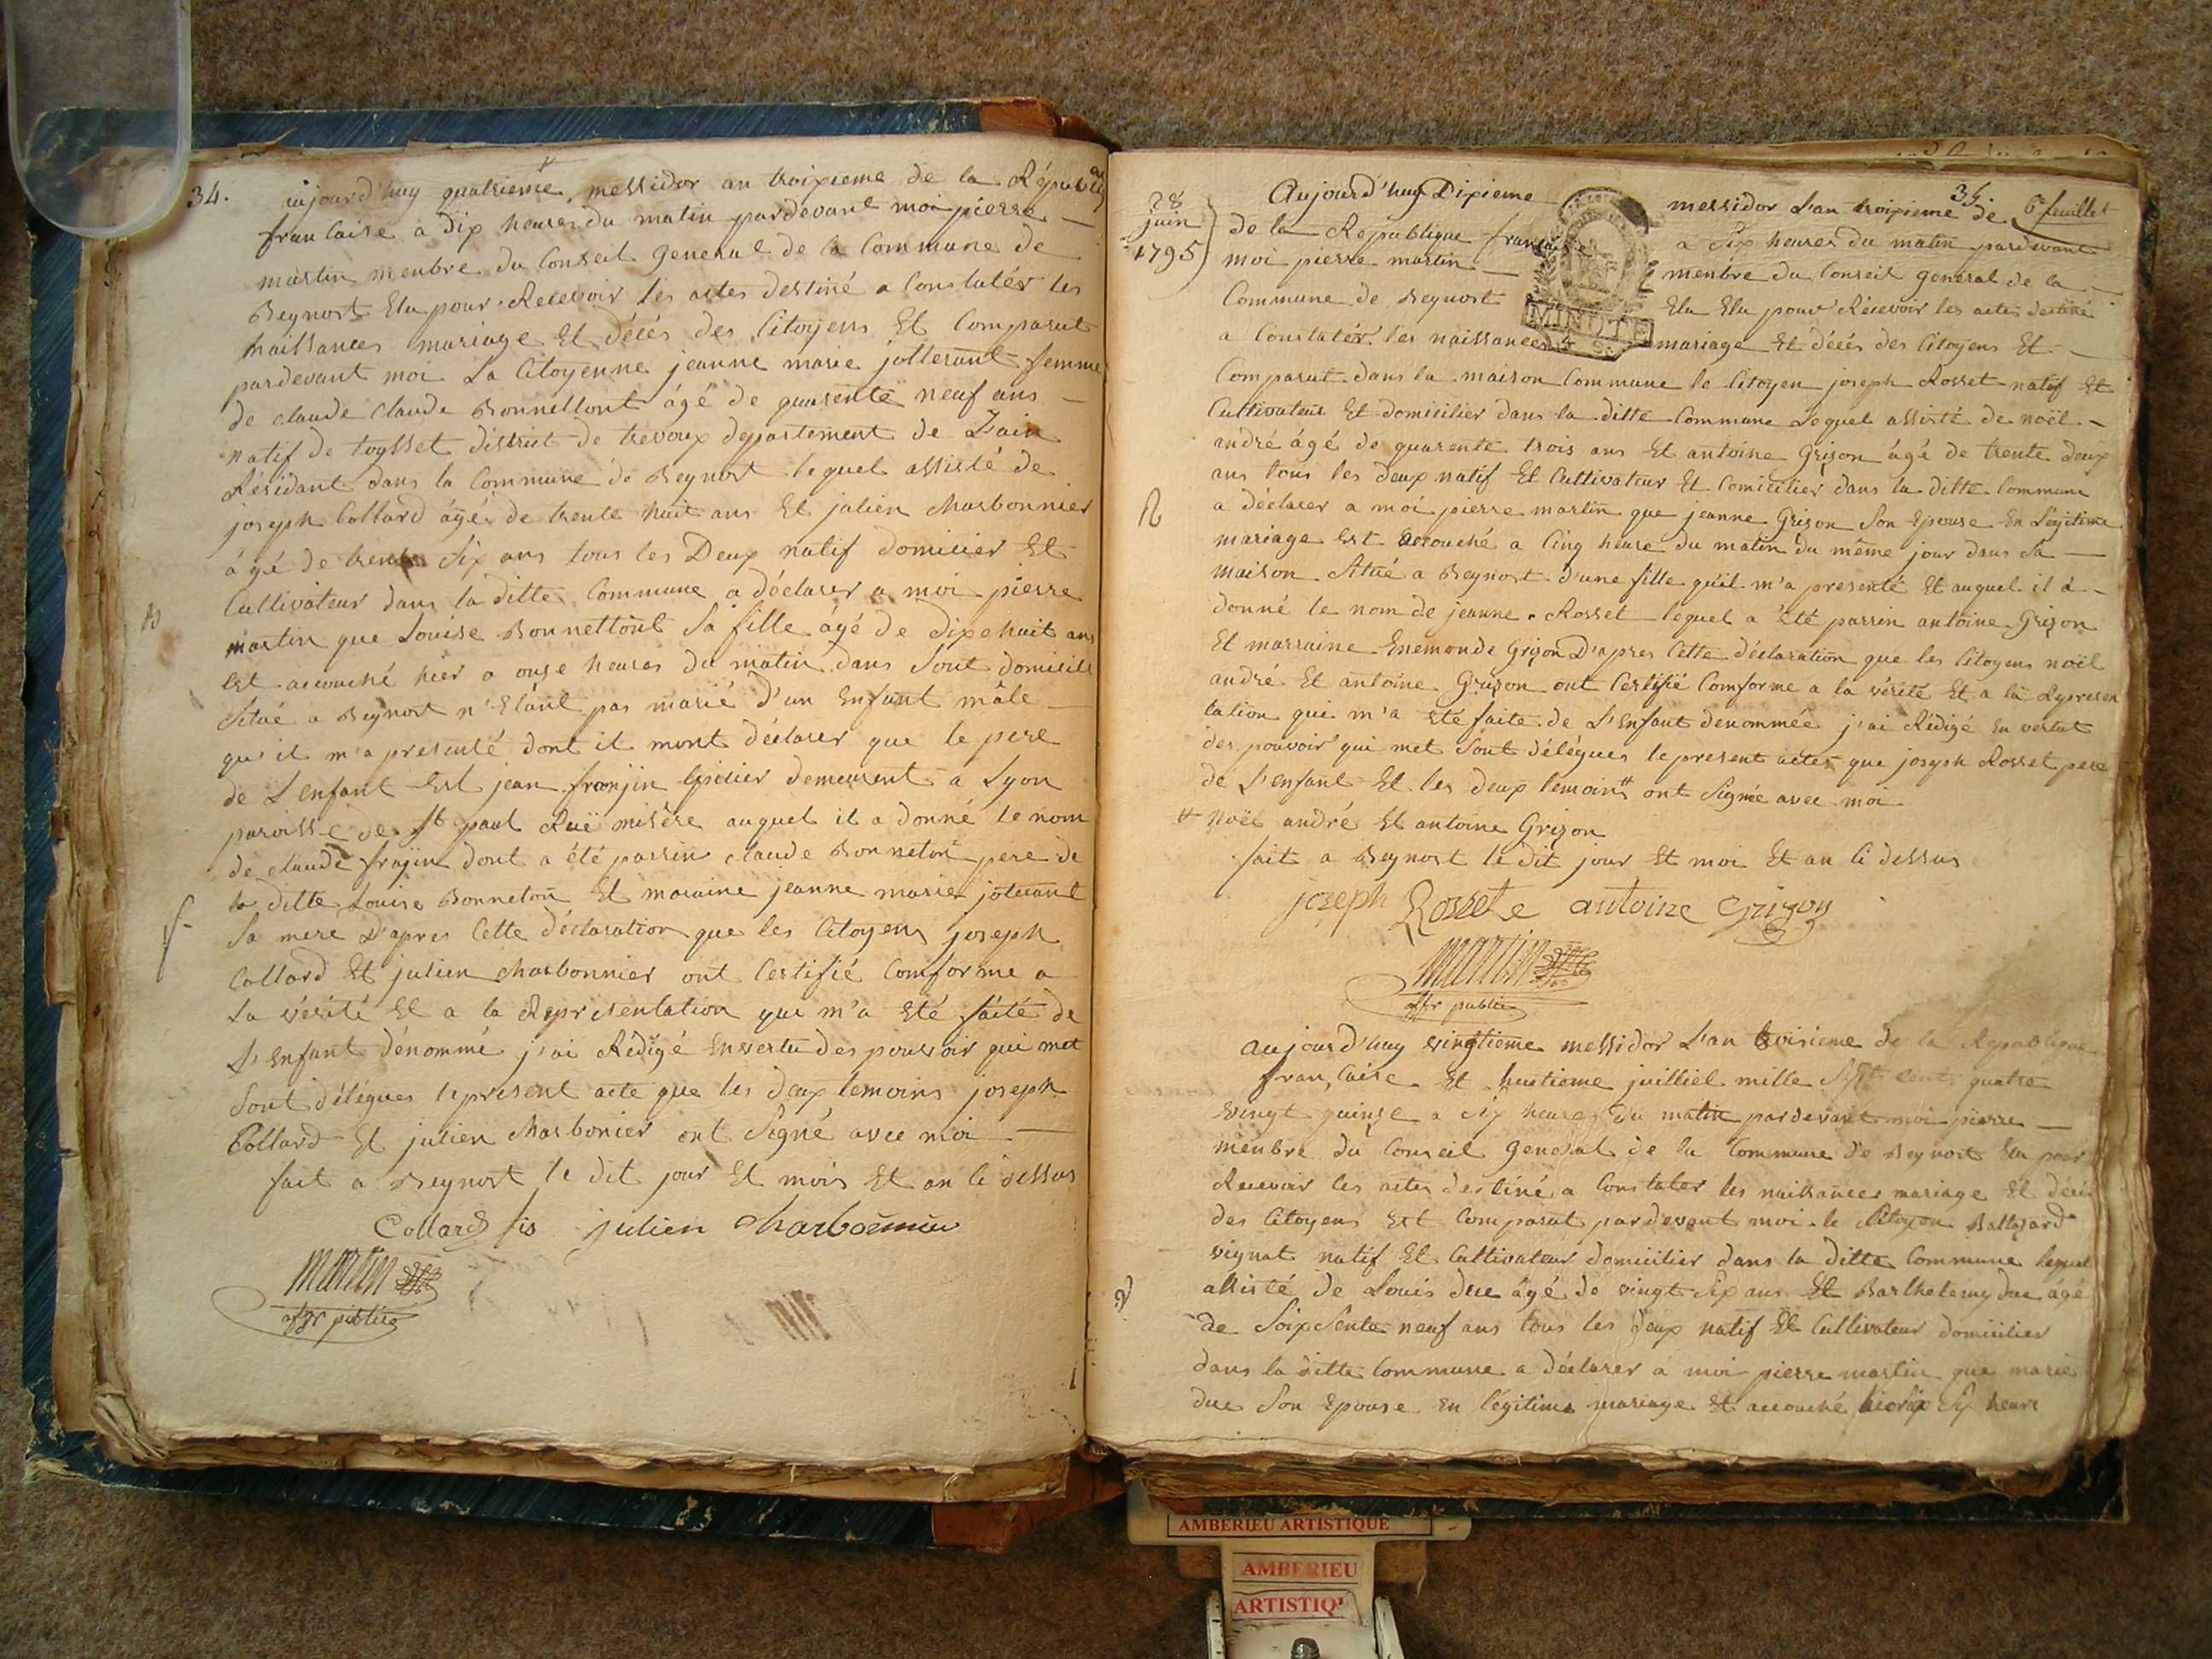 34.
aujourd'huy quatrieme messidor an troixieme de la Républiq
francaise a dix heures du matin pardevant moi pierre
martin menbre du Conseil general de la Commune de
Beynost Elu pour Recevoir les actes destiné a Constatér les
naissances mariage Et décés des Citoyens Et Comparut
pardevant moi La Citoyenne jeanne marie jotterant femme
de claude claude Bonnettont âgé de quarente neuf ans
natif de toysset district de trevoux departement de L'ain
Résidant dans la Commune de Beynost lequel assisté de
joseph Collard âgé de trente huit ans Et julien charbonnier
âgé de trente Six ans tous les Deux natif domicier Et
Cultivateur dans la ditte Commune a déclarer a moi pierre
martin que Louise Bonnettont Sa fille âgé de dixehuit ans
Est accouché hier a onze heures du matin dans Sont domicile
Situé a Beynost n'Etant pas marié d'un Enfant mâle
qu'il m'a presenté dont il mont déclarer que le pere
de L'enfant Est jean franjin Epicier demeurent a Lyon
paroisse de St paul Rue misère auquel il a donné le nom
de claude frajin dont a été parrin claude Bonneton pere de
la ditte Louise Bonneton Et maraine jeanne marie joterant
Sa mere D'apres Cette déclaration que les Citoyens joseph
Collard Et julien charbonnier ont Certifié Comforme a
La vérité Et a la Representation qui m'a Eté faité de
L'Enfant dénommé j'ai Rédigé Envertu des pouvoir qui met
Sont délégues lepresent acte que les deux temoins joseph
Collard Et julien charbonier ont Signé avec moi
fait a Beynost le dit jour Et mois Et an Ci dessus
Collard fis julien charbonnier
martin
ofr public
28
juin
1795
35.
6e feuillet
Aujourd'huy Dixieme messidor L'an troixieme de
de la Republique francaise a Six heures du matin pardevant
moi pierre martin menbre du Conseil general de la
Commune de Beynost Elu Elu pour Récevoir les actes destiné
a Constatér les naissances mariage Et décés des Citoyens Et
MINUTE
Comparut dans la maison Commune le Citoyen joseph Rosset natif Et
Cultivateur Et domicilier dans la ditte Commune Lequel assisté de noël
andré âgé de quarente trois ans Et antoine Grizon âgé de trente deux
ans tous les deux natif Et Cultivateur Et Comicilier dans la ditte Commune
a déclarer a moi pierre martin que jeanne Grizon Son Epouse En Légitime
mariage Est accouché a Cinq heure du matin du même jour dans Sa
maison Situé a Beynost d'une fille qu'il m'a presenté Et auquel il a
donné le nom de jeanne Rosset lequel a été parrin antoine Grizon
Et marraine Enemonde Grizon D'apres Cette déclaration que les Citoyens noël
andré Et antoine Grizon ont Certifié Comforme a la vérité Et a la Represen
tation qui m'a Eté faite de L'Enfant dénommée j'ai Rédigé En vertut
des pouvoir qui met Sont délégues lepresent actes que joseph Rosset pere
de L'enfant Et les deux temoins # ont Signée avec moi
# noël andré Et antoine Grizon
fait a Beynost le dit jour Et moi Et an Ci dessus
jozeph Rossete antoine Grizon
martin
ofr public
Aujourd'huy vingtieme messidor L'an troisieme de la Republique
francaise Et huitieme juilliel mille Sept cents quatre
vingt quinze a Six heures du matin pardevant moi pierre
menbre du Conseil general de la Commune de Beynost Elu pour
Recevoir les actes destiné a Constater les naissances mariage Et décés
des Citoyens Est Comparut pardevant moi le Citoyen Baltazard
vignat natif Et Cultivateur domicilier dans la ditte Commune lequel
assisté de Louis duc âgé de vingt Six ans Et Barthelemy duc âgé
de Soixsente neuf ans tous les deux natif Et Cultivateur domicilier
dans la ditte Commune a déclarer a moi pierre martin que marie
duc Son Epouse En légitime mariage Et accouché Six heure
AMBERIEU ARTISTIQUE
AMBERIEU
ARTISTIQ